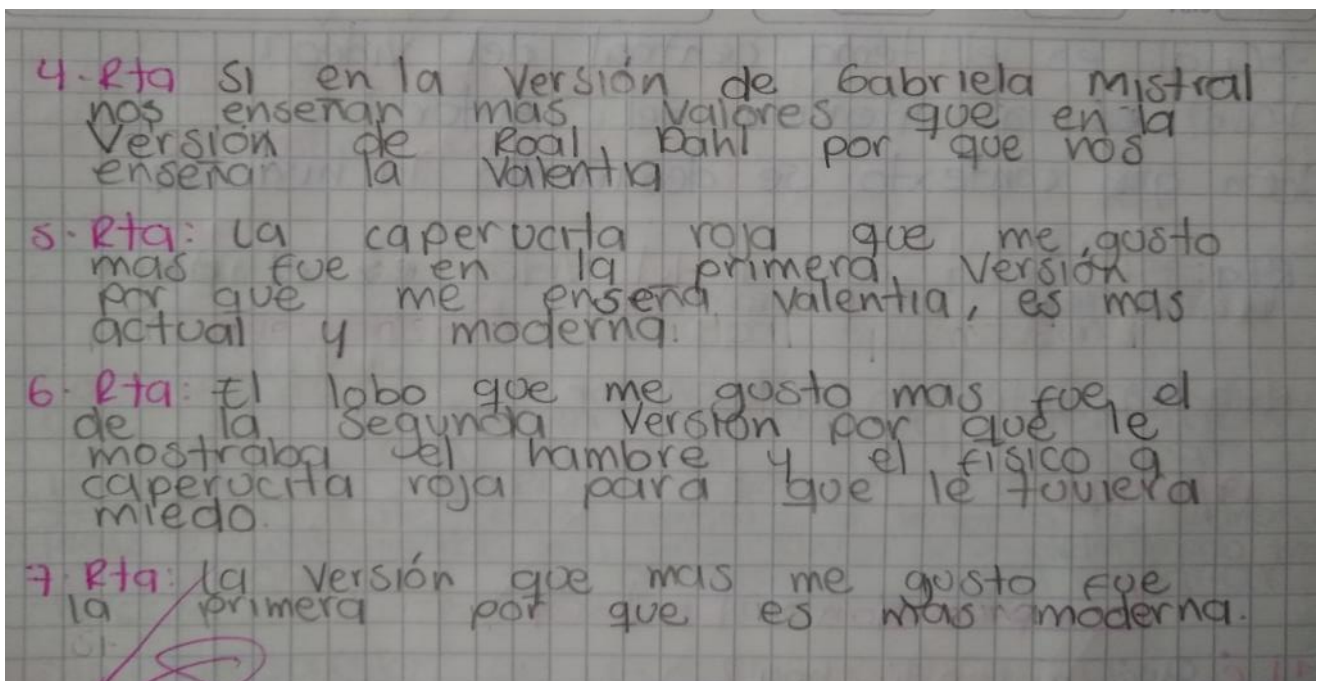 4. Rta Si en la Versión de Gabriela Mistral
nos enseñan mas valores que en la
Versión de Roal Dahl por que nos
enseña la Valentia
5. Rta: La caperucita roja que me gusto
mas fue en la primera, Versión
por que me enseña valentia, es mas
actual y moderna.
6. Rta: El lobo que me gusto mas fue, el
de la Segunda Versión por que le
mostraba el hambre y el fisico a
caperucita roja para que le tuviera
miedo.
7. Rta: La versión que mas me gusto fue
la primera por que es mas moderna.